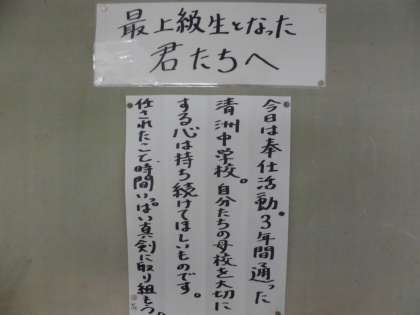 最上級生となった
君たちへ
今日は奉仕活動。3年間通った
清洲中学校。自分たちの母校を大切に
する心は持ち続けてほしいものです。
任されたこと、時間いっぱい真剣に取り組もう。